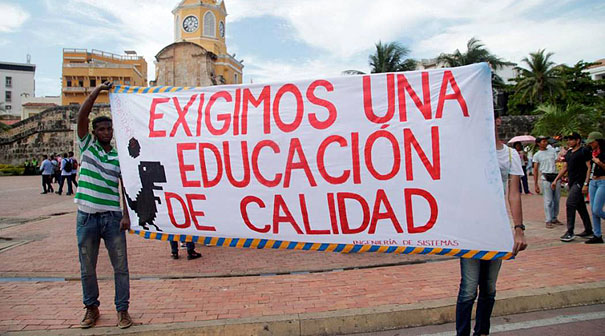 EXIGIMOS UNA
EDUCACIÓN
DE CALIDAD
INGENIERÍA DE SISTEMAS